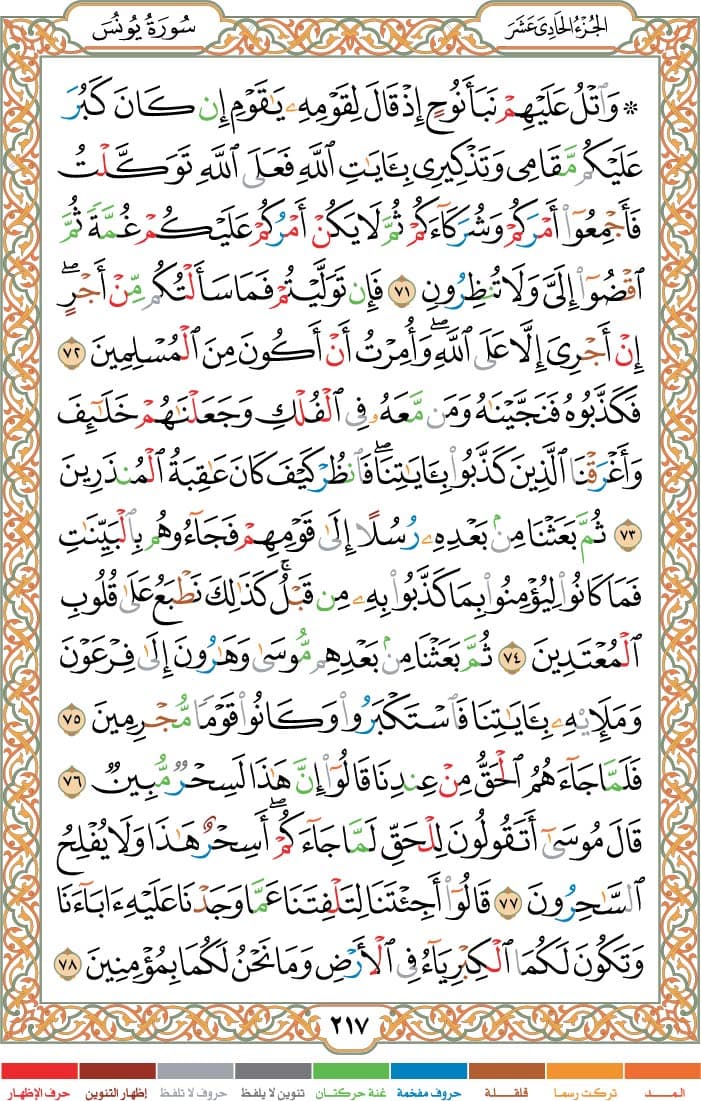 الجزء الحادي عشر
سورة يونس
۞ وَٱتْلُ عَلَيْهِمْ نَبَأَ نُوحٍ إِذْ قَالَ لِقَوْمِهِۦ يَٰقَوْمِ إِن كَانَ كَبُرَ
عَلَيْكُم مَّقَامِى وَتَذْكِيرِى بِـَٔايَٰتِ ٱللَّهِ فَعَلَى ٱللَّهِ تَوَكَّلْتُ
فَأَجْمِعُوٓا۟ أَمْرَكُمْ وَشُرَكَآءَكُمْ ثُمَّ لَا يَكُنْ أَمْرُكُمْ عَلَيْكُمْ غُمَّةً ثُمَّ
ٱقْضُوٓا۟ إِلَىَّ وَلَا تُنظِرُونِ ٧١ فَإِن تَوَلَّيْتُمْ فَمَا سَأَلْتُكُم مِّنْ أَجْرٍ ۖ
إِنْ أَجْرِىَ إِلَّا عَلَى ٱللَّهِ ۖ وَأُمِرْتُ أَنْ أَكُونَ مِنَ ٱلْمُسْلِمِينَ ٧٢
فَكَذَّبُوهُ فَنَجَّيْنَٰهُ وَمَن مَّعَهُۥ فِى ٱلْفُلْكِ وَجَعَلْنَٰهُمْ خَلَٰٓئِفَ
وَأَغْرَقْنَا ٱلَّذِينَ كَذَّبُوا۟ بِـَٔايَٰتِنَا ۖ فَٱنظُرْ كَيْفَ كَانَ عَٰقِبَةُ ٱلْمُنذَرِينَ
٧٣ ثُمَّ بَعَثْنَا مِنۢ بَعْدِهِۦ رُسُلًا إِلَىٰ قَوْمِهِمْ فَجَآءُوهُم بِٱلْبَيِّنَٰتِ
فَمَا كَانُوا۟ لِيُؤْمِنُوا۟ بِمَا كَذَّبُوا۟ بِهِۦ مِن قَبْلُ ۚ كَذَٰلِكَ نَطْبَعُ عَلَىٰ قُلُوبِ
ٱلْمُعْتَدِينَ ٧٤ ثُمَّ بَعَثْنَا مِنۢ بَعْدِهِم مُّوسَىٰ وَهَٰرُونَ إِلَىٰ فِرْعَوْنَ
وَمَلَإِي۟هِۦ بِـَٔايَٰتِنَا فَٱسْتَكْبَرُوا۟ وَكَانُوا۟ قَوْمًا مُّجْرِمِينَ ٧٥
فَلَمَّا جَآءَهُمُ ٱلْحَقُّ مِنْ عِندِنَا قَالُوٓا۟ إِنَّ هَٰذَا لَسِحْرٌ مُّبِينٌ ٧٦
قَالَ مُوسَىٰٓ أَتَقُولُونَ لِلْحَقِّ لَمَّا جَآءَكُمْ ۖ أَسِحْرٌ هَٰذَا وَلَا يُفْلِحُ
ٱلسَّٰحِرُونَ ٧٧ قَالُوٓا۟ أَجِئْتَنَا لِتَلْفِتَنَا عَمَّا وَجَدْنَا عَلَيْهِ ءَابَآءَنَا
وَتَكُونَ لَكُمَا ٱلْكِبْرِيَآءُ فِى ٱلْأَرْضِ وَمَا نَحْنُ لَكُمَا بِمُؤْمِنِينَ ٧٨
٢١٧
المـــد تركت رسما قلقـلة حروف مفخمة غنة حركتان تنوين لا يلفظ حروف لا تلفظ إظهار التنوين حرف الإظهار